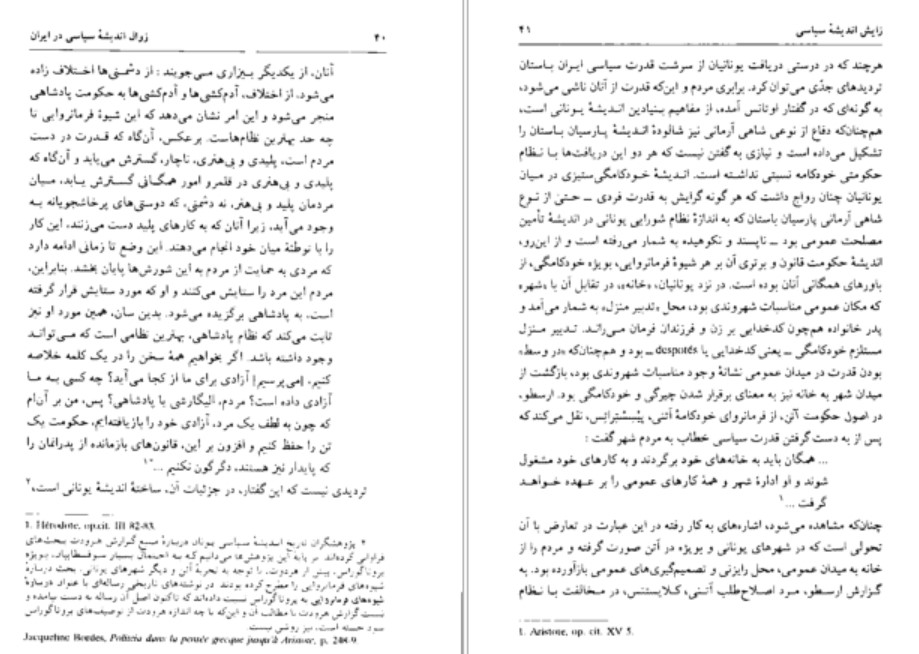 ۴۰ زوال اندیشهٔ سیاسی در ایران
آنان، از یکدیگر بیزاری می‌جویند : از دشمنی‌ها اختلاف زاده
می‌شود، از اختلاف، آدم‌کشی‌ها و آدم‌کشی‌ها به حکومت پادشاهی
منجر می‌شود و این امر نشان می‌دهد که این شیوهٔ فرمانروایی تا
چه حد بهترین نظام‌هاست. برعکس، آن‌گاه که قدرت در دست
مردم است، پلیدی و بی‌هنری، ناچار، گسترش می‌یابد و آن‌گاه که
پلیدی و بی‌هنری در قلمرو امور همگانی گسترش یابد، میان
مردمان پلید و بی‌هنر، نه دشمنی، که دوستی‌های پرخاشجویانه به
وجود می‌آید، زیرا آنان که به کارهای پلید دست می‌زنند، این کار
را با توطئهٔ میان خود انجام می‌دهند. این وضع تا زمانی ادامه دارد
که مردی به حمایت از مردم به این شورش‌ها پایان بخشد. بنابراین،
مردم این مرد را ستایش می‌کنند و او که مورد ستایش قرار گرفته
است، به پادشاهی برگزیده می‌شود. بدین سان، همین مورد او نیز
ثابت می‌کند که نظام پادشاهی، بهترین نظامی است که می‌تواند
وجود داشته باشد. اگر بخواهیم همهٔ سخن را در یک کلمه خلاصه
کنیم، [می‌پرسیم] آزادی برای ما از کجا می‌آید؟ چه کسی به ما
آزادی داده است؟ مردم، الیگارشی یا پادشاهی؟ پس، من بر آن‌ام
که چون به لطف یک مرد، آزادی خود را بازیافته‌ایم، حکومت یک
تن را حفظ کنیم و افزون بر این، قانون‌های بازمانده از پدرانمان را
که پایدار نیز هستند، دگرگون نکنیم ...»۱
تردیدی نیست که این گفتار، در جزئیات آن، ساختهٔ اندیشهٔ یونانی است،۲
1. Hérodote, op.cit. III 82-83.
۲. پژوهشگران تاریخ اندیشهٔ سیاسی یونان دربارهٔ منبع گزارش هرودت بحث‌های
فراوانی کرده‌اند. بر پایهٔ این پژوهش‌ها می‌دانیم که به احتمال بسیار سوفسطاییان، بویژه
پروتاگوراس، پیش از هرودت، با توجه به تجربهٔ آتن و دیگر شهرهای یونانی، بحث دربارهٔ
شیوه‌های فرمانروایی را مطرح کرده بودند. در نوشته‌های تاریخی رساله‌ای با عنوان دربارهٔ
شیوه‌های فرمانروایی به پروتاگوراس نسبت داده‌اند که تاکنون اصل آن رساله به دست نیامده و
نسبت گزارش هرودت با مطالب آن و این‌که تا چه اندازه هرودت از توصیف‌های پروتاگوراس
سود جسته است، نیز روشن نیست.
Jacqueline Bordes, Politeia dans la pensée grecque jusqu'à Aristote, p. 248-9.
زایش اندیشهٔ سیاسی ۴۱
هرچند که در درستی دریافت یونانیان از سرشت قدرت سیاسی ایران باستان
تردیدهای جدّی می‌توان کرد. برابری مردم و این‌که قدرت از آنان ناشی می‌شود،
به گونه‌ای که در گفتار اوتانس آمده، از مفاهیم بنیادین اندیشهٔ یونانی است،
هم‌چنان‌که دفاع از نوعی شاهی آرمانی نیز شالودهٔ اندیشهٔ پارسیان باستان را
تشکیل می‌داده است و نیازی به گفتن نیست که هر دو این دریافت‌ها با نظام
حکومتی خودکامه نسبتی نداشته است. اندیشهٔ خودکامگی‌ستیزی در میان
یونانیان چنان رواج داشت که هر گونه گرایش به قدرت فردی ــ حتیٰ از نوع
شاهی آرمانی پارسیان باستان که به اندازهٔ نظام شورایی یونانی در اندیشهٔ تأمین
مصلحت عمومی بود ــ ناپسند و نکوهیده به شمار می‌رفته است و از این‌رو،
اندیشهٔ حکومت قانون و برتری آن بر هر شیوهٔ فرمانروایی، بویژه خودکامگی، از
باورهای همگانی آنان بوده است. در نزد یونانیان، «خانه»، در تقابل آن با «شهر»
که مکان عمومی مناسبات شهروندی بود، محل «تدبیر منزل» به شمار می‌آمد و
پدر خانواده هم‌چون کدخدایی بر زن و فرزندان فرمان می‌راند. تدبیر منزل
مستلزم خودکامگی ــ یعنی کدخدایی یا despotès ــ بود و هم‌چنان‌که «در وسط»
بودن قدرت در میدان عمومی نشانهٔ وجود مناسبات شهروندی بود، بازگشت از
میدان شهر به خانه نیز به معنای برقرار شدن چیرگی و خودکامگی بود. ارسطو،
در اصول حکومت آتن، از فرمانروای خودکامهٔ آتنی، پیسیستراتس، نقل می‌کند که
پس از به دست گرفتن قدرت سیاسی خطاب به مردم شهر گفت :
... همگان باید به خانه‌های خود برگردند و به کارهای خود مشغول
شوند و او ادارهٔ شهر و همهٔ کارهای عمومی را بر عهده خواهد
گرفت ...۱
چنان‌که مشاهده می‌شود، اشاره‌های به کار رفته در این عبارت در تعارض با آن
تحولی است که در شهرهای یونانی و بویژه در آتن صورت گرفته و مردم را از
خانه به میدان عمومی، محل رایزنی و تصمیم‌گیری‌های عمومی بازآورده بود. به
گزارش ارسطو، مرد اصلاح‌طلب آتنی، کلایستنس، در مخالفت با نظام
1. Aristote, op. cit. XV 5.